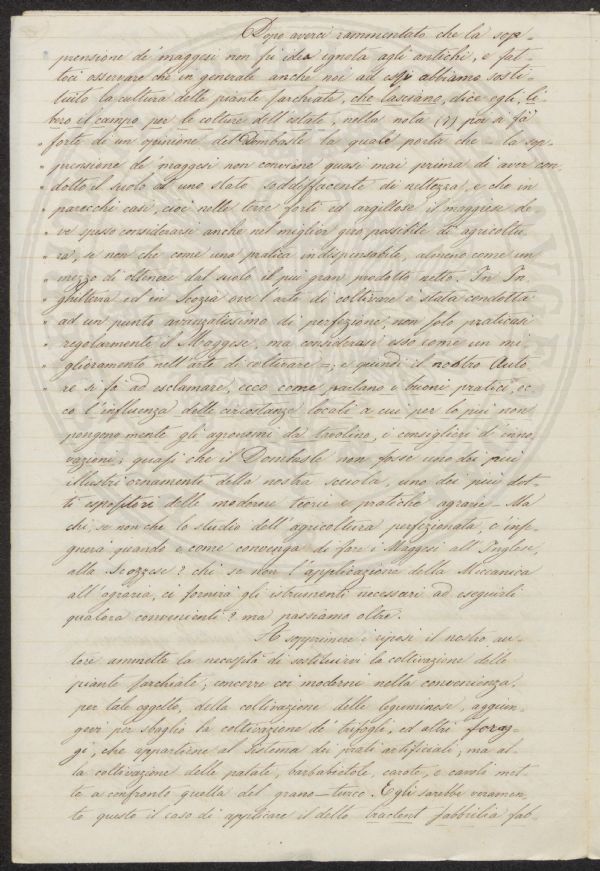 Dopo averci rammentato che la sop-
pressione de' maggesi non fù idea ignota agli antichi, e fat-
toci osservare che in generale anche noi ad essi abbiamo sosti-
tuito la cultura delle piante sarchiate, che lasciano, dice egli, li-
bero il campo per le colture dell'estate, nella nota (7) poi si fà
" forte di un opinione del Dombasle la quale porta che = la sop-
" pressione de' maggesi non conviene quasi mai prima di aver con-
" dotto il suolo ad uno stato soddisfacente di nettezza, e che in
" parecchi casi, cioè nelle terre forti ed argillose il maggese de-
" ve spesso considerarsi anche nel miglior giro possibile di agricoltu-
" ra, se non che come una pratica indispensabile, almeno come un
" mezzo di ottenere dal suolo il più gran prodotto netto. In In-
" ghilterra ed in Scozia ove l'arte di coltivare è stata condotta
" ad un punto avanzatissimo di perfezione, non solo praticasi
" regolarmente il Maggese, ma considerasi esso come un mi-
" glioramento nell'arte di coltivare =; e quindi il nostro Auto-
" re si fà ad esclamare, ecco come parlano i buoni pratici, ec-
co l'influenza delle circostanze locali a cui per lo più non
pongono mente gli agronomi da tavolino, i consiglieri d'inno-
vazioni; quasi che il Dombasle non fosse uno dei più
illustri ornamenti della nostra scuola, uno dei più dot-
ti espositore delle moderne teorie e pratiche agrarie - Ma
chi, se non che lo studio dell'agricoltura perfezionata, c'inse-
gnerà quando e come convenga di fare i Maggesi all'Inglese,
alla Scozzese? chi se non l'applicazione della Meccanica
all'agraria, ci fornirà gli istrumenti necessari ad eseguirli
qualora convenienti? ma passiamo oltre.
A sopprimere i riposi il nostro au-
tore ammette la necessità di sostituirvi la coltivazione delle
piante sarchiate; concorre coi moderni nella convenienza,
per tale oggetto, della coltivazione delle leguminose, aggiun-
gervi per sbaglio la coltivazione de' trifogli, ed altri forag-
gi, che appartiene al sistema dei prati artificiali; ma al-
la coltivazione delle patate, barbabietole, carote, e cavoli met-
te a confronto quella del grano-turco. Egli sarebbe veramen-
te questo il caso di applicare il detto tractent fabbrilia fab-